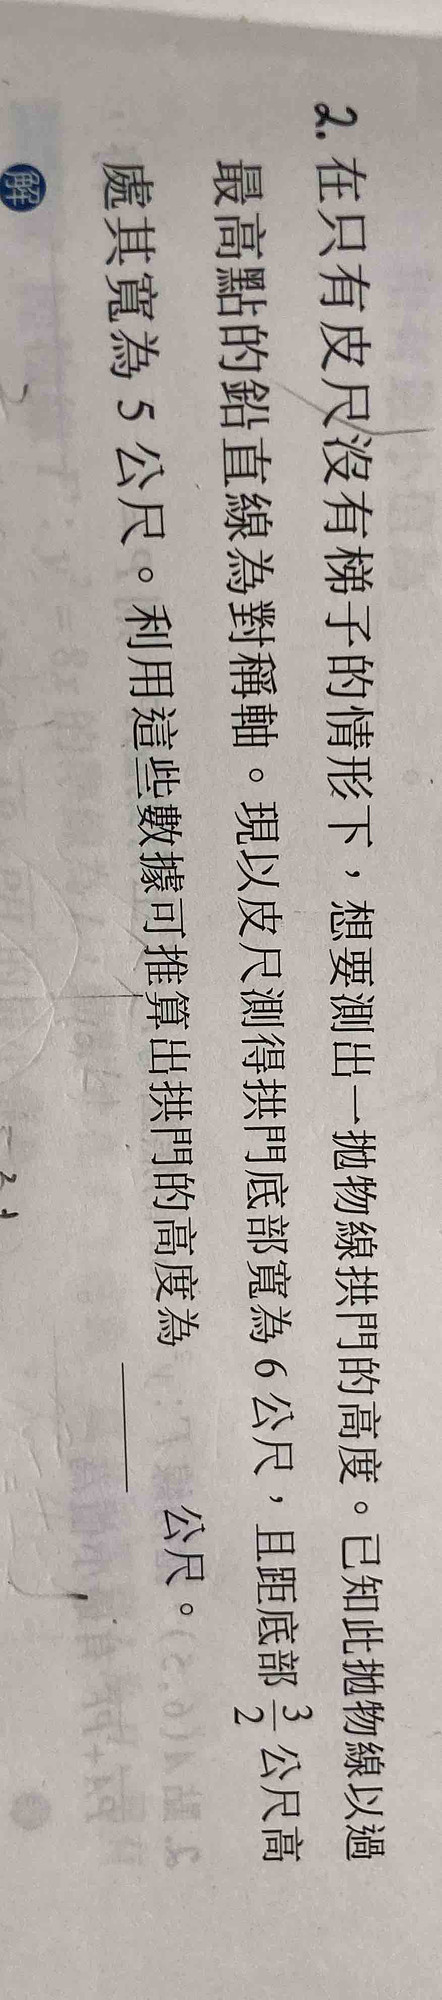 2. 在只有皮尺沒有梯子的情形下，想要測出一拋物線拱門的高度。已知此拋物線以過
最高點的鉛直線為對稱軸。現以皮尺測得拱門底部寬為6公尺，且距底部3/2公尺高
處其寬為5公尺。利用這些數據可推算出拱門的高度為______公尺。
解